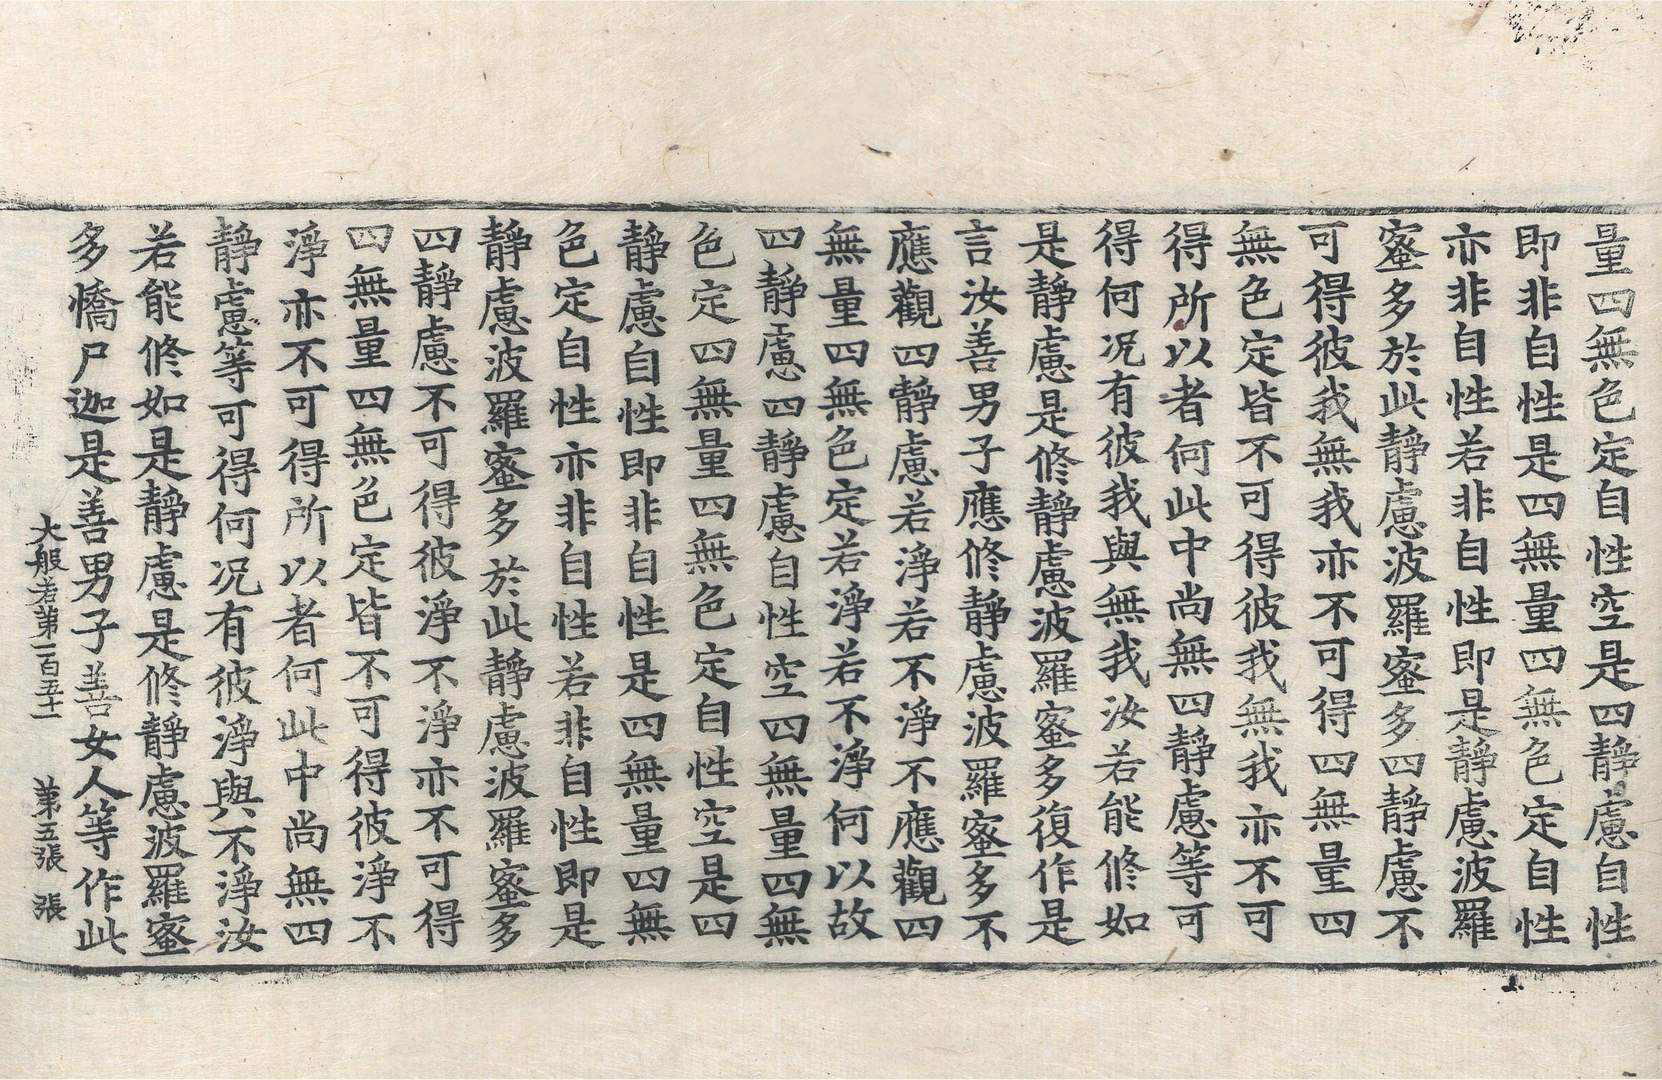 量四無色定自性空是四靜慮自性
即非自性是四無量四無色定自性
亦非自性若非自性即是靜慮波羅
蜜多於此靜慮波羅蜜多四靜慮不
可得彼我無我亦不可得四無量四
無色定皆不可得彼我無我亦不可
得所以者何此中尚無四靜慮等可
得何况有彼我與無我汝若能修如
是靜慮是修靜慮波羅蜜多復作是
言汝善男子應修靜慮波羅蜜多不
應觀四靜慮若淨若不淨不應觀四
無量四無色定若淨若不淨何以故
四靜慮四靜慮自性空四無量四無
色定四無量四無色定自性空是四
靜慮自性即非自性是四無量四無
色定自性亦非自性若非自性即是
靜慮波羅蜜多於此靜慮波羅蜜多
四靜慮不可得彼淨不淨亦不可得
四無量四無色定皆不可得彼淨不
淨亦不可得所以者何此中尚無四
靜慮等可得何况有彼淨與不淨汝
若能修如是靜慮是修靜慮波羅蜜
多憍尸迦是善男子善女人等作此
大般若第一百五十一 第五張 張